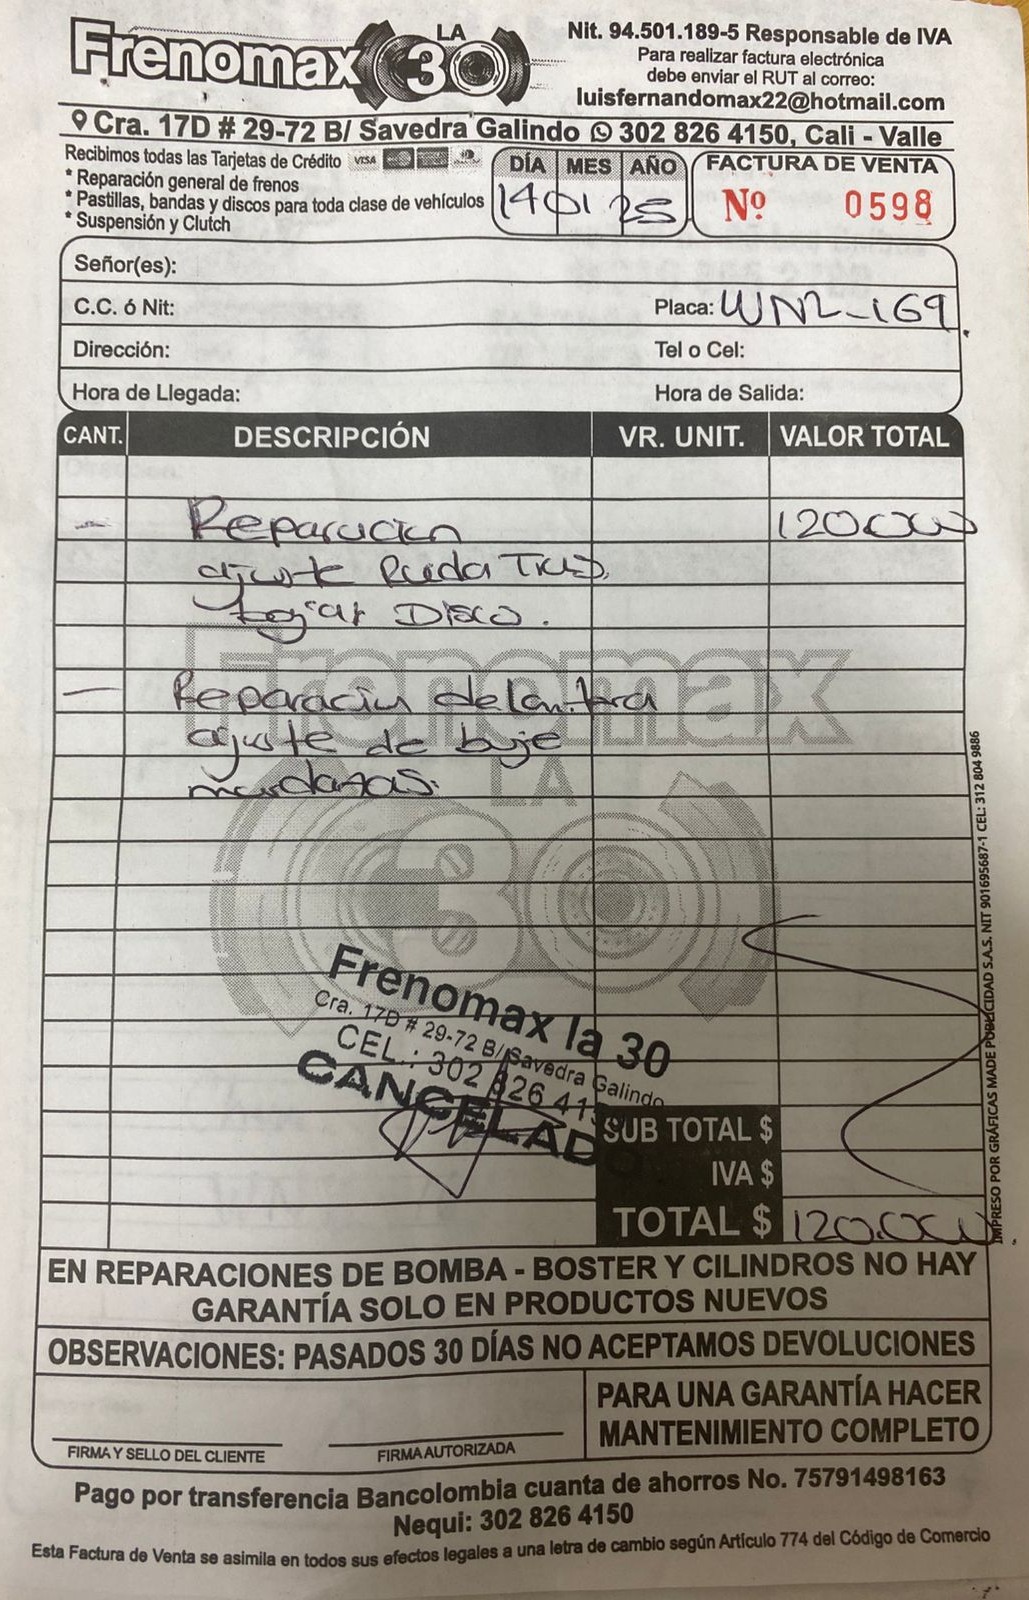 Frenomax LA 30
Nit. 94.501.189-5 Responsable de IVA
Para realizar factura electrónica
debe enviar el RUT al correo:
luisfernandomax22@hotmail.com
Cra. 17D # 29-72 B/ Savedra Galindo 302 826 4150, Cali - Valle
Recibimos todas las Tarjetas de Crédito VISA
* Reparación general de frenos
* Pastillas, bandas y discos para toda clase de vehículos
* Suspensión y Clutch
DÍA MES AÑO
14 01 25
FACTURA DE VENTA
Nº 0598
Señor(es):
C.C. ó Nit: Placa: WNZ-169
Dirección: Tel o Cel:
Hora de Llegada: Hora de Salida:
CANT. DESCRIPCIÓN VR. UNIT. VALOR TOTAL
- Reparacion 120.000
ajuste Rueda Tras.
Disco.
- Reparacion delantera
ajuste de buje
mordazas.
Frenomax
LA
30
Frenomax la 30
Cra. 17D # 29-72 B/ Savedra Galindo
CEL.: 302 826 415
CANCELADO
SUB TOTAL $
IVA $
TOTAL $ 120.000
EN REPARACIONES DE BOMBA - BOSTER Y CILINDROS NO HAY
GARANTÍA SOLO EN PRODUCTOS NUEVOS
OBSERVACIONES: PASADOS 30 DÍAS NO ACEPTAMOS DEVOLUCIONES
PARA UNA GARANTÍA HACER
MANTENIMIENTO COMPLETO
FIRMA Y SELLO DEL CLIENTE FIRMA AUTORIZADA
Pago por transferencia Bancolombia cuanta de ahorros No. 75791498163
Nequi: 302 826 4150
Esta Factura de Venta se asimila en todos sus efectos legales a una letra de cambio según Artículo 774 del Código de Comercio
IMPRESO POR GRÁFICAS MADE PUBLICIDAD S.A.S. NIT 901695687-1 CEL: 312 804 9886